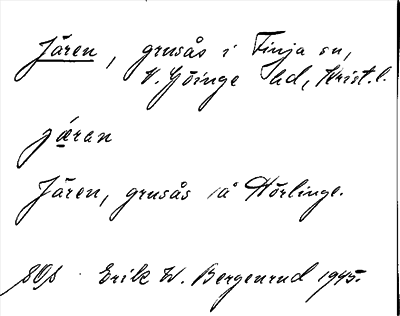 Jären, grusås i Finja sn,
V. Göinge hd, Krist. l.
jä́ran
Jären, grusås på Hörlinge.
SOS Erik W. Bergenrud 1945.